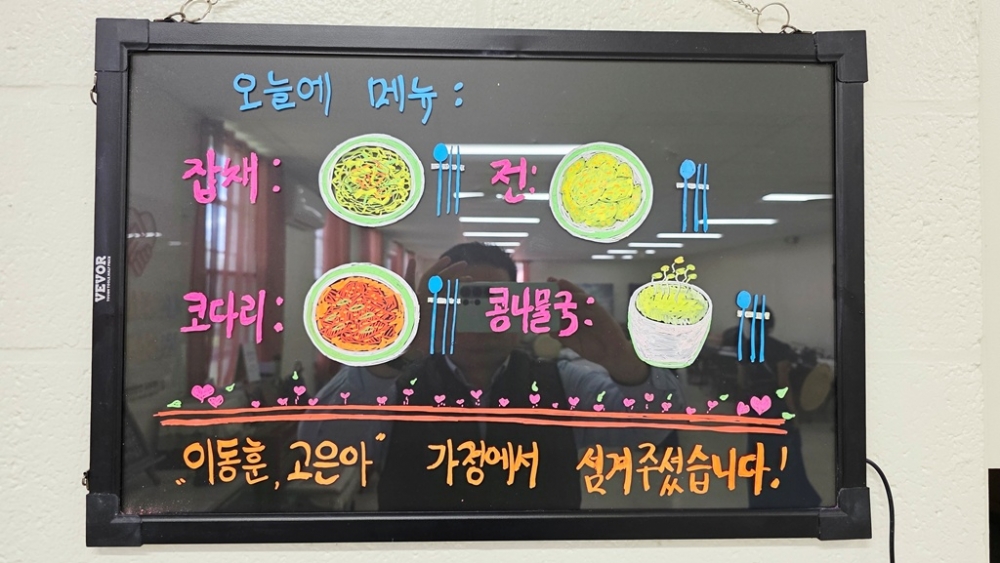 오늘에 메뉴:
잡채: 전:
코다리: 콩나물국:
"이동훈, 고은아" 가정에서 섬겨주셨습니다!
VEVOR